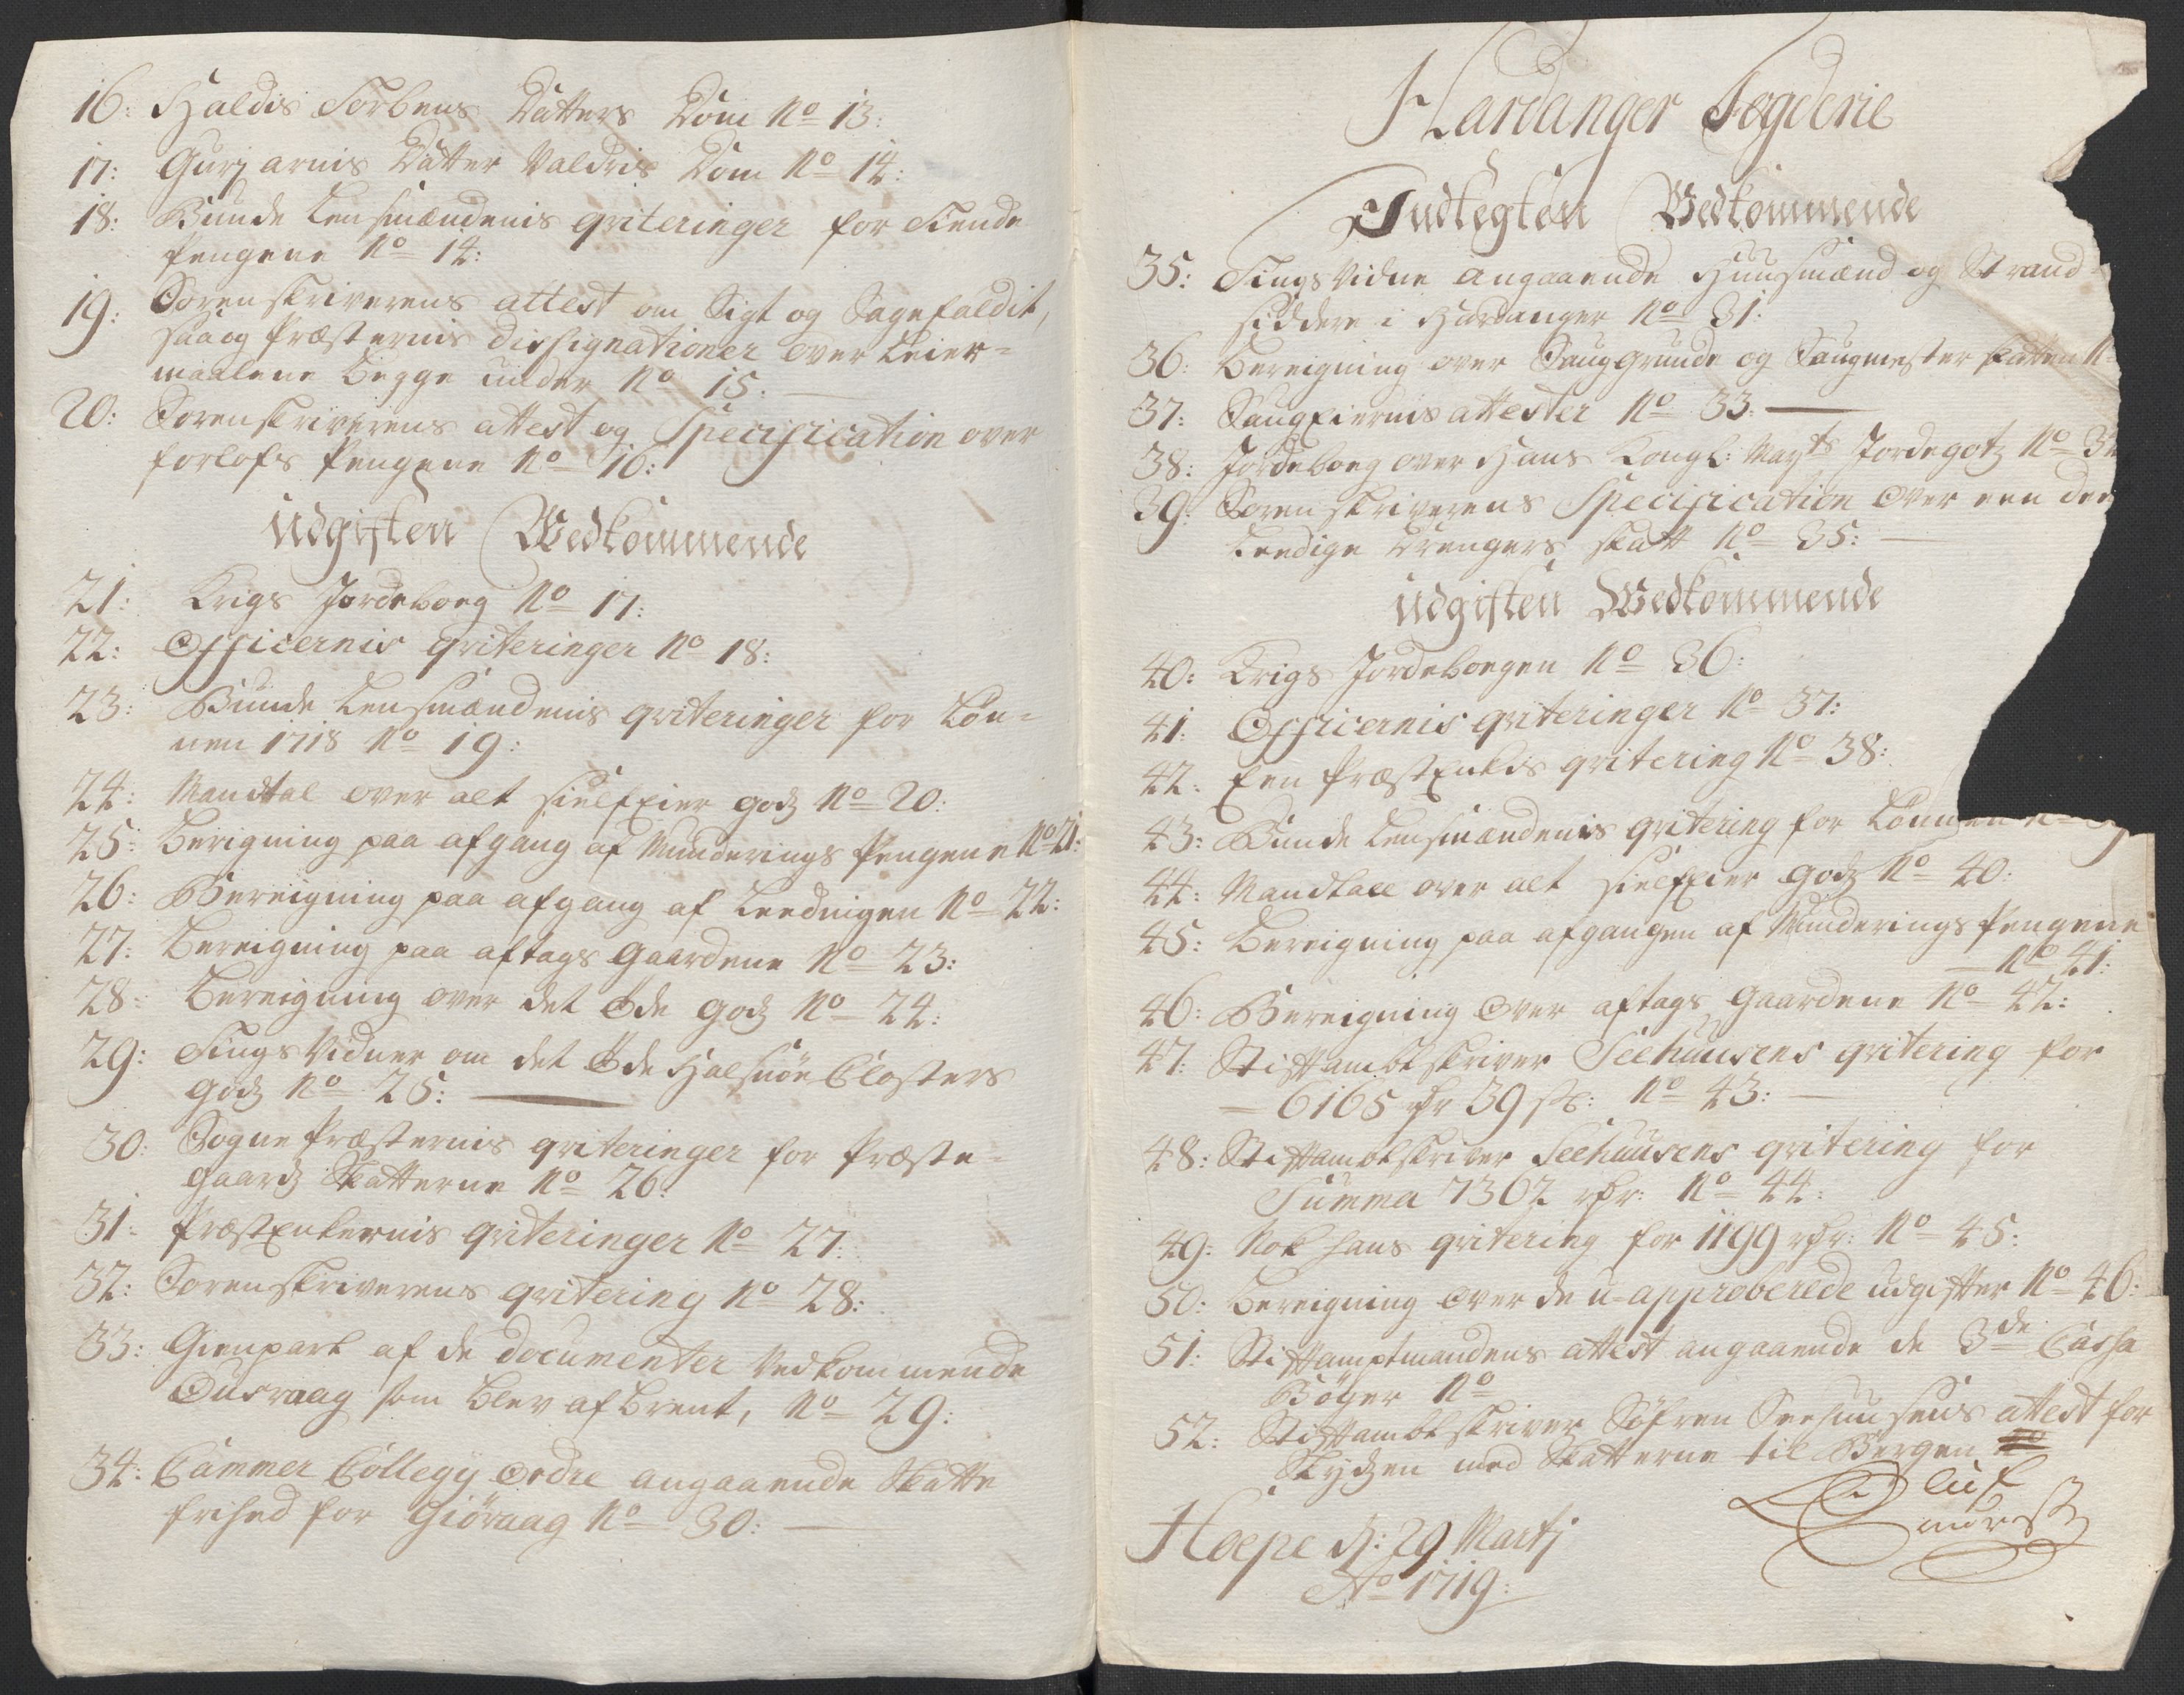 16: Haldis Torbens Datters Dom No 13:
17: Gurj arnis Datter Valdris Dom No 14:
18: Bunde Lensmændenis qviteringer for Tiende
Pengene No 14:
19: Sorenskriverens attest om Sigt og Sagefaldit,
saa og Præsternis dissignationer over Leier-
maalene begge under No 15.
20: Sorenskriverens attest og Specification over
forlofs Pengene No 16:
Udgiften Vedkommende
21: Krigs Jordeboeg No 17:
22: Officernis qviteringer No 18:
23: Bunde Lensmændenis qviteringer for Løn-
nen 1718 No 19:
24: Mandtal over alt sielfEier godz No 20:
25: Berigning paa afgang af Munderings Pengene No 21:
26: Bereigning paa afgang af Leedingen No 22:
27: Bereigning paa aftags Gaardene No 23:
28: Bereigning over det Øde godz No 24:
29: Tings Vidner om det Øde Halsnöe Closters
godz No 25:
30: Sogne Præsternis qviteringer for Præste-
gaardz Skatterne No 26:
31: PræstEnkernis qviteringer No 27:
32: Sorenskriverens qvitering No 28:
33: Gienpart af de documenter Vedkommende
Ousvaag som blev afbrent, No 29:
34: Cammer Collegij Ordre angaaende Skatte
frihed for Giöraag No 30:
Hardanger Fogderie
Indtegten Vedkommende
35: Tings Vidne angaaende Huusmænd og Strand-
siddere i Hardanger No 31:
36: Bereigning over Sauggrunde og Saugmester skatten N
37: SaugEiernis attester No 33.
38: Jordeboeg over Hans Kongl: Mayts Jordegotz No 3
39: Sorenskriverens Specification over een deel
Leedige drengers skatt No 35:
Udgiften Vedkommende
40: Krigs Jordeboegen No 36:
41: Officernis qviteringer No 37:
42: Een PræstEnkis qvitering No 38:
43: Bunde Lensmændenis qvitering for Lønnen
44: Mandtall over alt sielfEier godz No 40:
45: Bereigning paa afgangen af Munderings Pengene
No 41:
46: Bereigning Over aftags Gaardene No 42:
47: Stiftambtskriver Seehuusens qvitering for
6165 rdr 39 sk: No 43:
48: Stiftambtskriver Seehuusens qvitering for
Summa 7302 rdr: No 44:
49: Nok hans qvitering for 1199 rdr: No 45:
50: Bereigning over de u-approberede udgifter No 46:
51: Stiftamptmandens attest angaaende de 3de Cassa
Böger No
52: Stiftambtskriver Söfren Seehuusens attest for
Skydzen med Skatterne til Bergen
Hoepe dj: 29 Martj
Ao 1719: